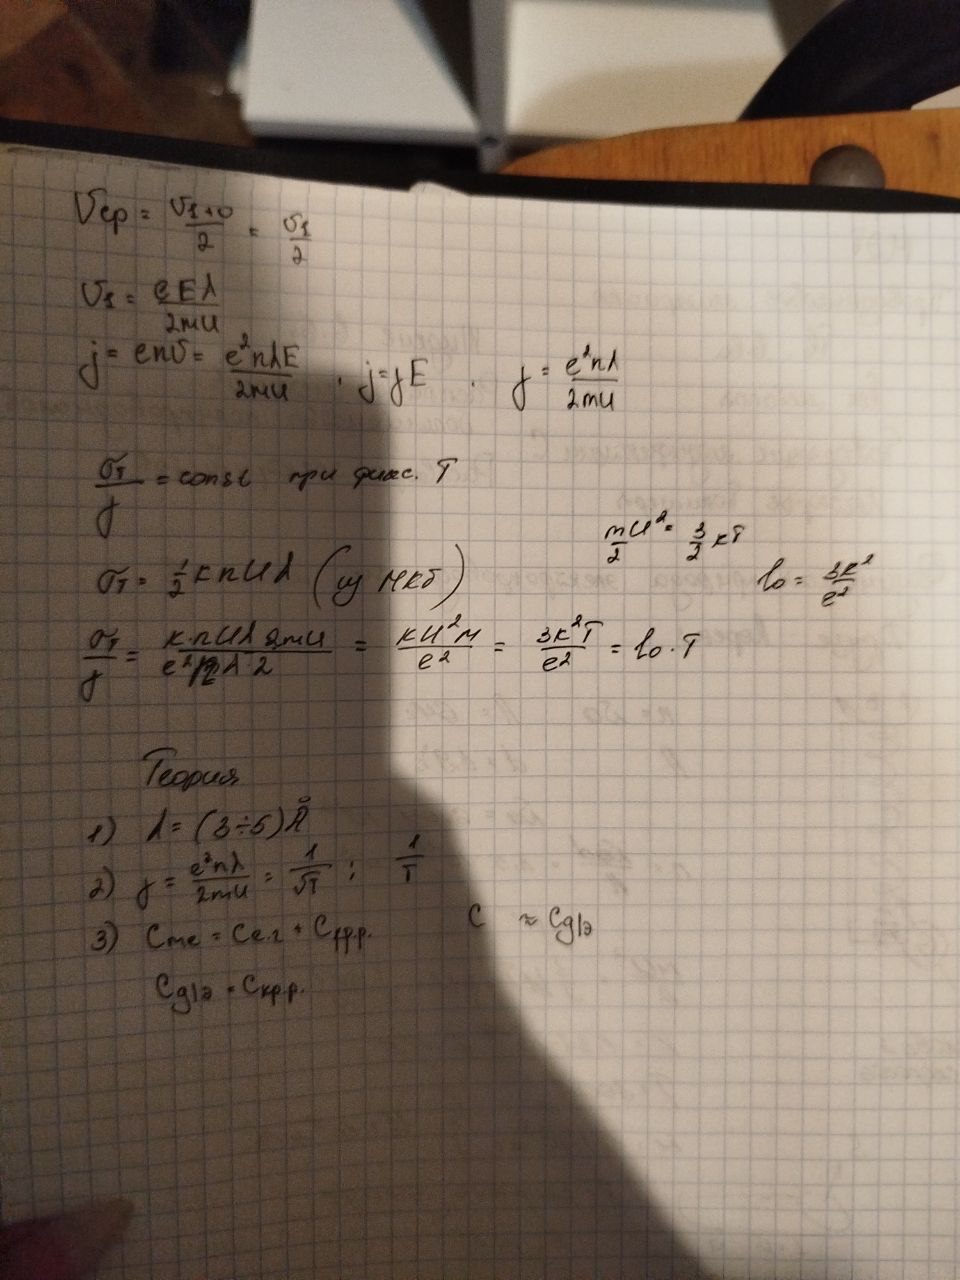 Vср = (υ₁+0)/2 = υ₁/2
υ₁ = eEλ/2mu
j = enυ = e²nλE/2mu , j=γE . γ = e²nλ/2mu
σт/γ = const при фикс. T
mu²/2 = 3/2 кT
σт = 1/2 кnuλ (из МКТ) l₀ = 3к²/e²
σт/γ = к·nuλ 2mu/e²nλ·2 = кu²м/e² = 3к²T/e² = l₀·T
Теория
1) λ = (3÷5)Å
2) γ = e²nλ/2mu = 1/√T ; 1/T
3) Cме = Cе.г + Cкр.р. C ≈ Cд/э
Cд/э = Cкр.р.